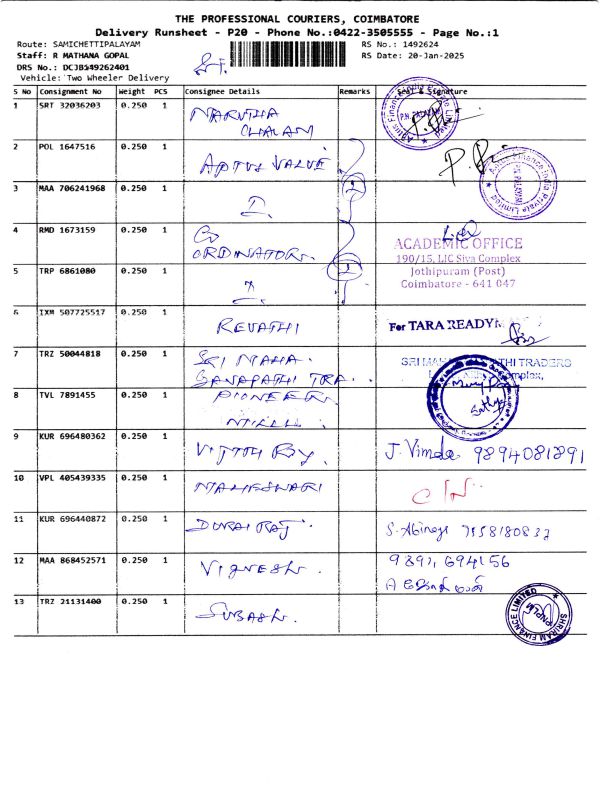 THE PROFESSIONAL COURIERS, COIMBATORE
Delivery Runsheet - P20 - Phone No.:0422-3505555 - Page No.:1
Route: SAMICHETTIPALAYAM
RS No.: 1492624
Staff: R MATHANA GOPAL
RS Date: 20-Jan-2025
DRS No.: DCJBS49262401
Vehicle: Two Wheeler Delivery
S No Consignment No Weight PCS Consignee Details Remarks Seal & Signature
1 SRT 32036203 0.250 1
2 POL 1647516 0.250 1 APTUS VALUE
3 MAA 706241968 0.250 1
4 RMD 1673159 0.250 1 CO
ORDINATOR.
ACADEMIC OFFICE
190/15, LIC Siva Complex
Jothipuram (Post)
Coimbatore - 641 047
5 TRP 6861080 0.250 1
6 IXM 507725517 0.250 1 REVATHI
For TARA READYM
7 TRZ 50044818 0.250 1 SRI MAHA
GANAPATHI TRA
SRI MAHA THI TRADERS
8 TVL 7891455 0.250 1 PIONEER
9 KUR 696480362 0.250 1
J. Vimala 9894081891
10 VPL 405439335 0.250 1 MAHESWARI
11 KUR 696440872 0.250 1 DURAI RAJ
S. Abinaya 7558180837
12 MAA 868452571 0.250 1 VIGNESH
13 TRZ 21131400 0.250 1 SUBASH
SHRIRAM FINANCE LIMITED